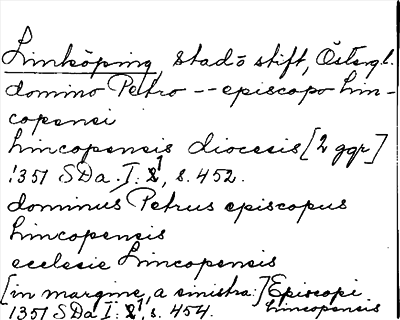 Linköping, stad o stift, Östergl.
domino Petro -- episcopo Lin-
copensi
Lincopensis diocesis [2 ggr]
1351 SDa. I: 1, s. 452.
dominus Petrus episcopus
Lincopensis
ecclesie Lincopensis
[in margine, a sinistra:] Episcopi
Lincopensis
1351 SDa I: 1, s. 454.